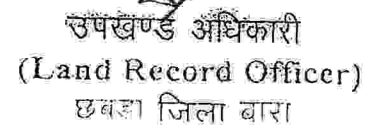 उपखण्ड अधिकारी
(Land Record Officer)
छबडा जिला बारा